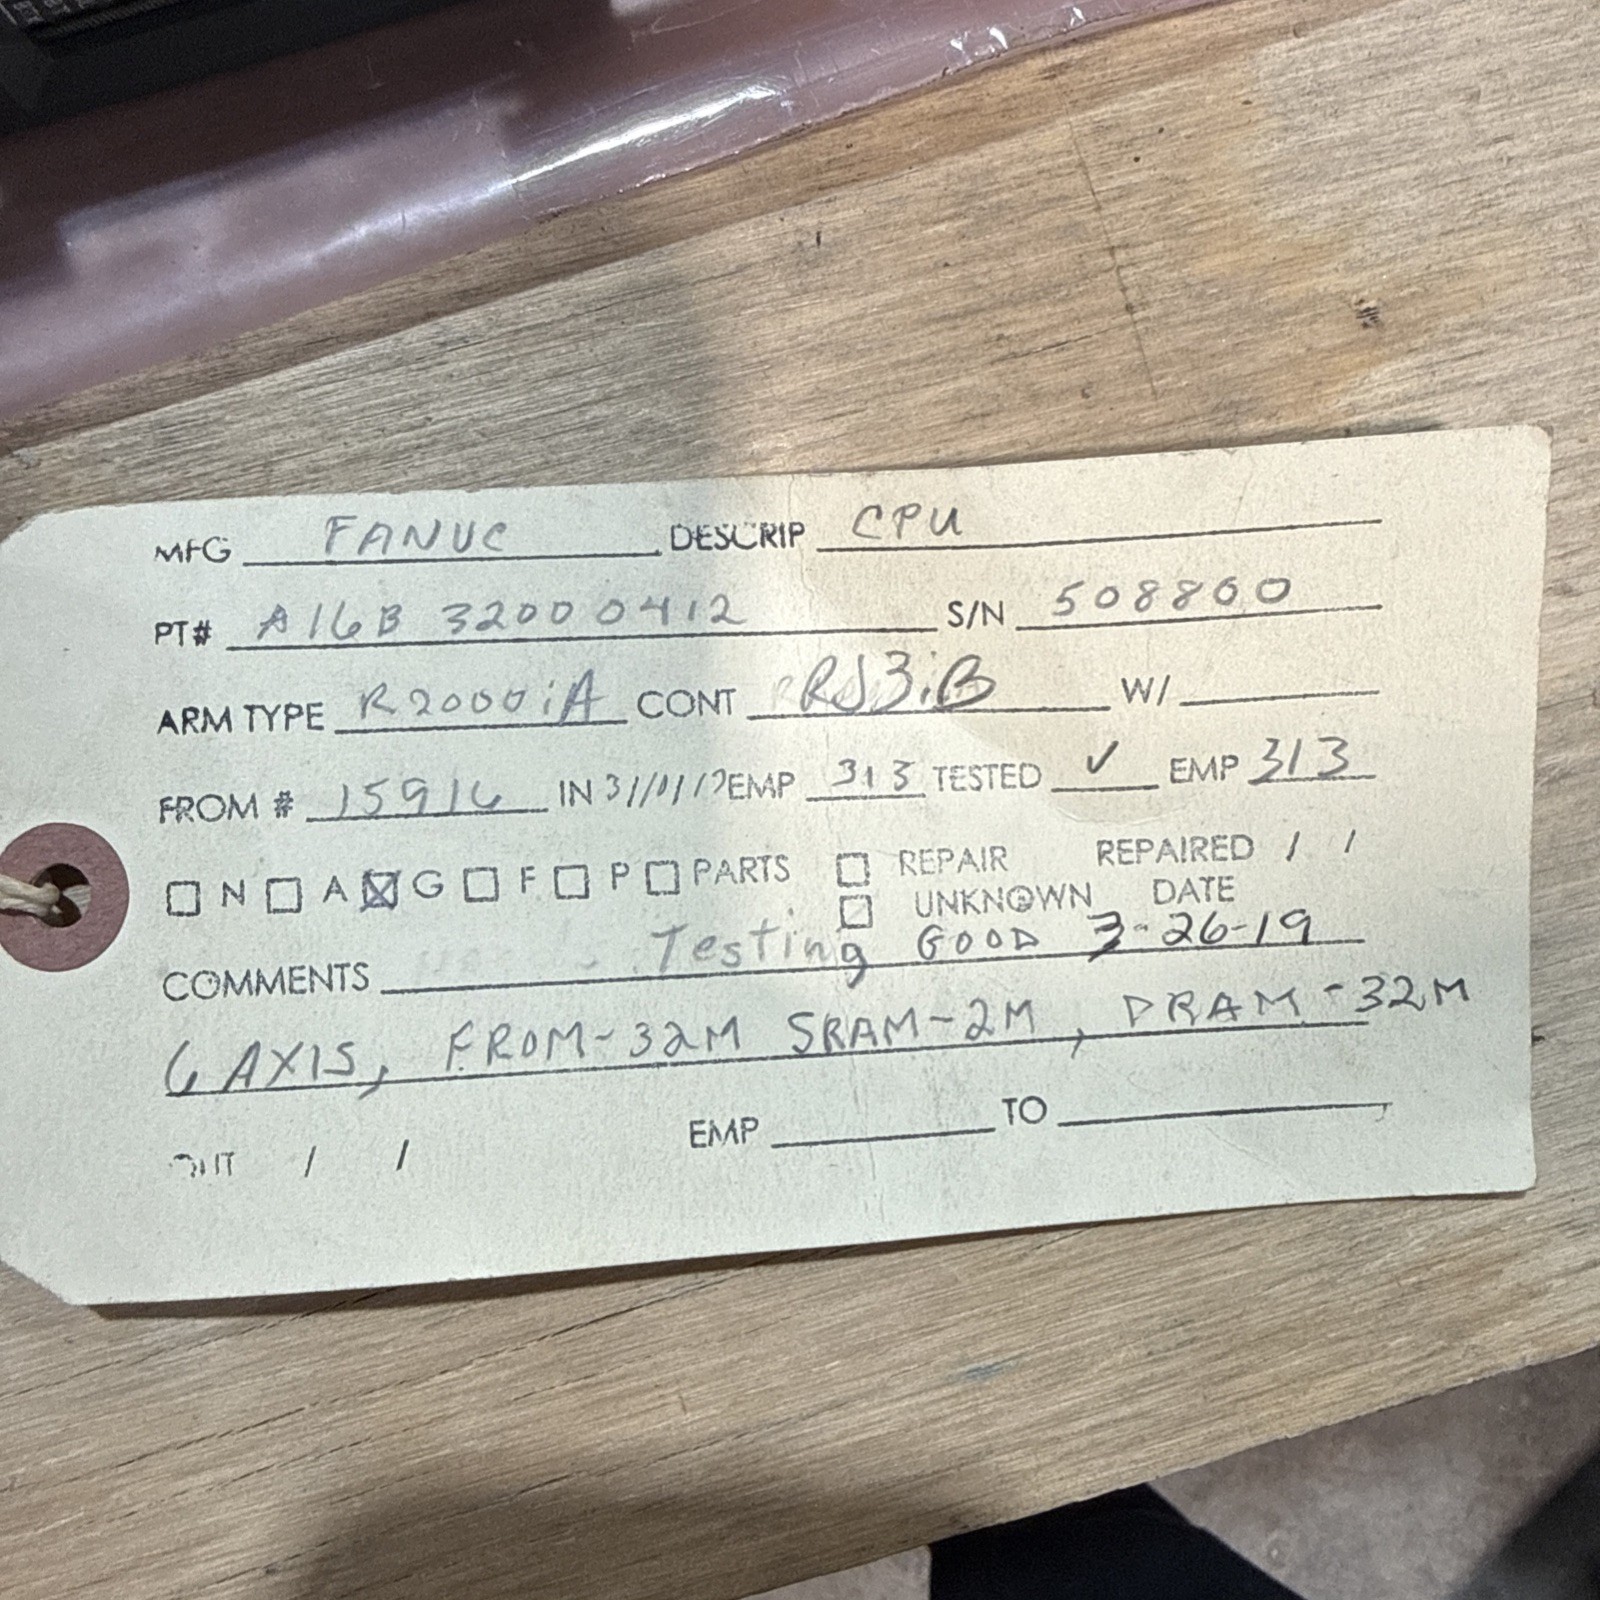 MFG FANUC DESCRIP CPU
PT# A16B 3200 0412 S/N 508800
ARM TYPE R2000iA CONT RJ3iB W/
FROM # 15916 IN EMP 313 TESTED ✓ EMP 313
☐ N ☐ A ☒ G ☐ F ☐ P ☐ PARTS ☐ REPAIR REPAIRED / /
☐ UNKNOWN DATE
COMMENTS Testing GOOD 3-26-19
6 AXIS, FROM-32M SRAM-2M, DRAM-32M
OUT / / EMP TO